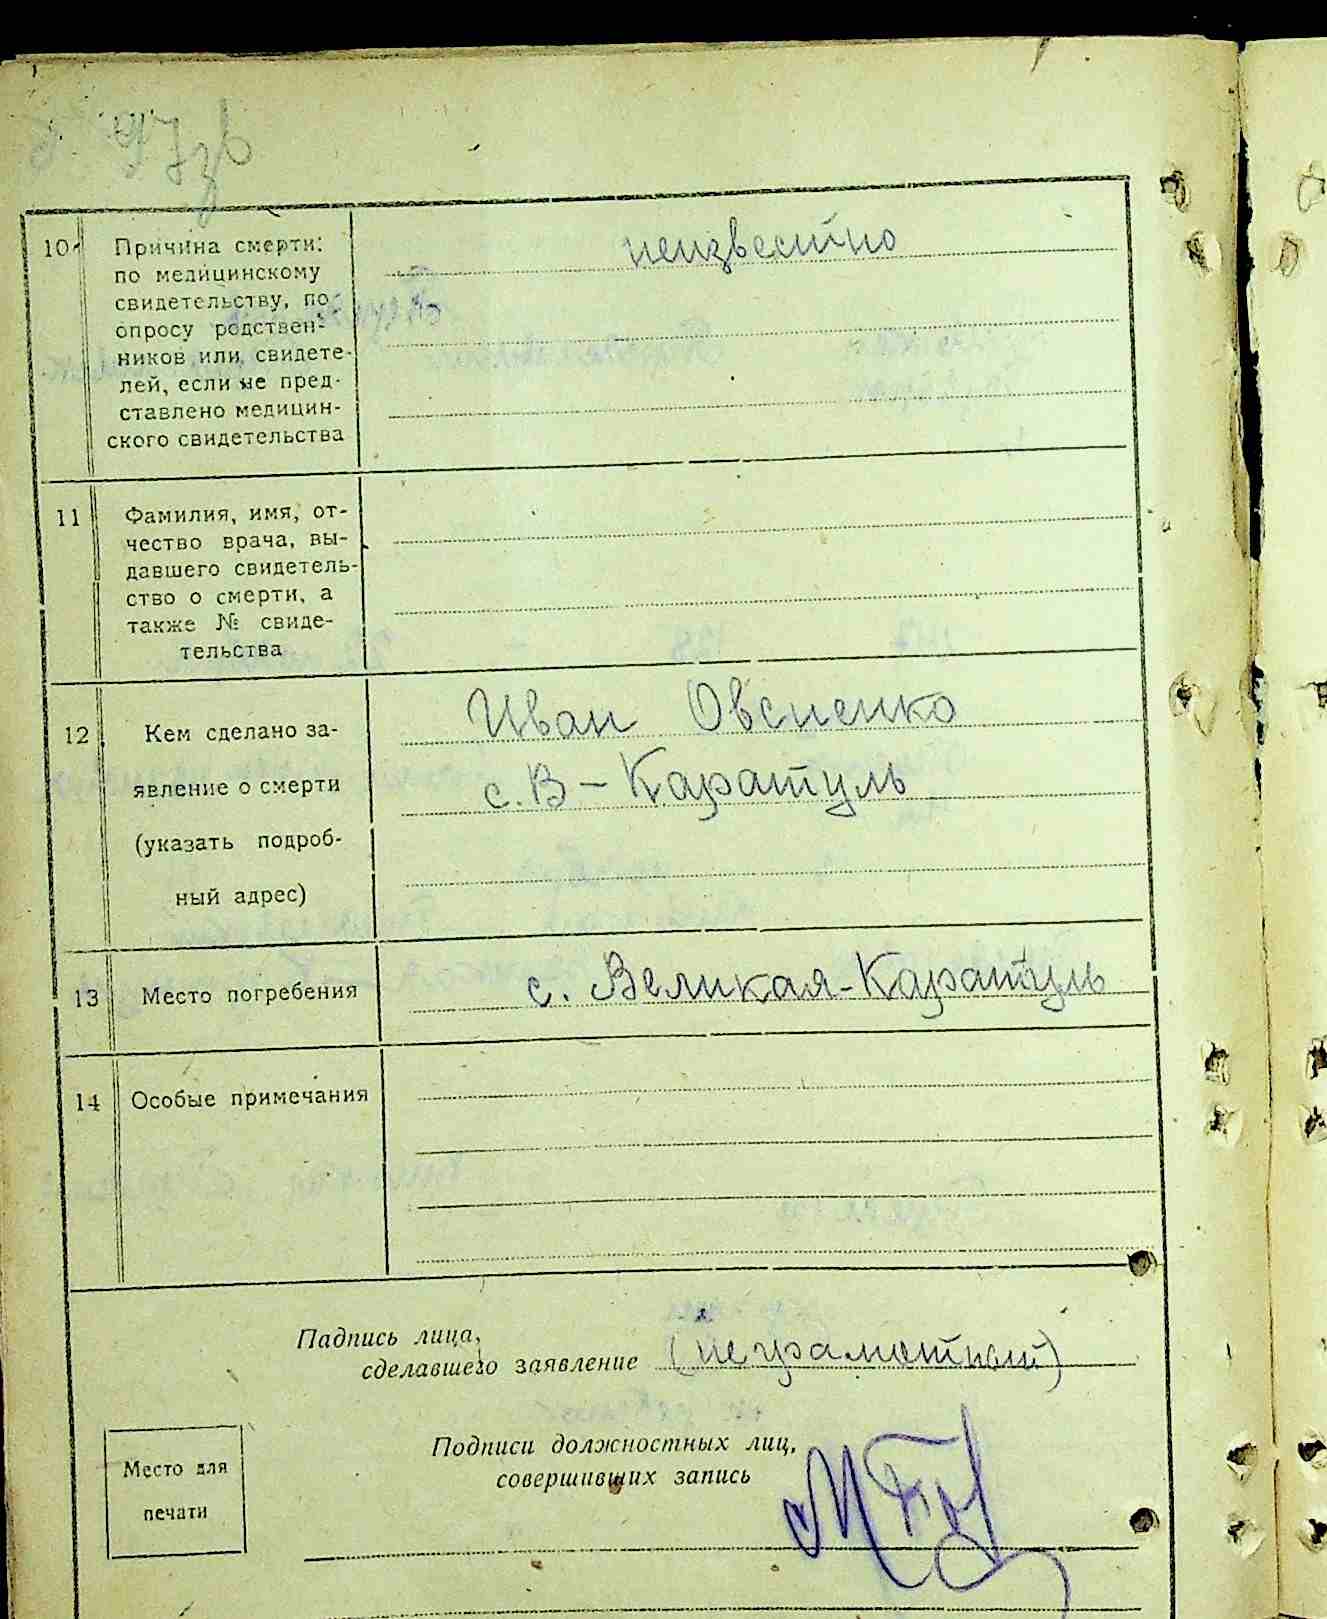 10. Причина смерти:
по медицинскому
свидетельству, по
опросу родствен-
ников или свидете-
лей, если не пред-
ставлено медицин-
ского свидетельства
неизвестно
11 Фамилия, имя, от-
чество врача, вы-
давшего свидетель-
ство о смерти, а
также № свиде-
тельства
12 Кем сделано за-
явление о смерти
(указать подроб-
ный адрес)
Иван Овсиенко
с. В - Каратуль
13 Место погребения
с. Великая-Каратуль
14 Особые примечания
Падпись лица,
сделавшего заявление (неграмотный)
Подписи должностных лиц,
совершивших запись
Место для
печати